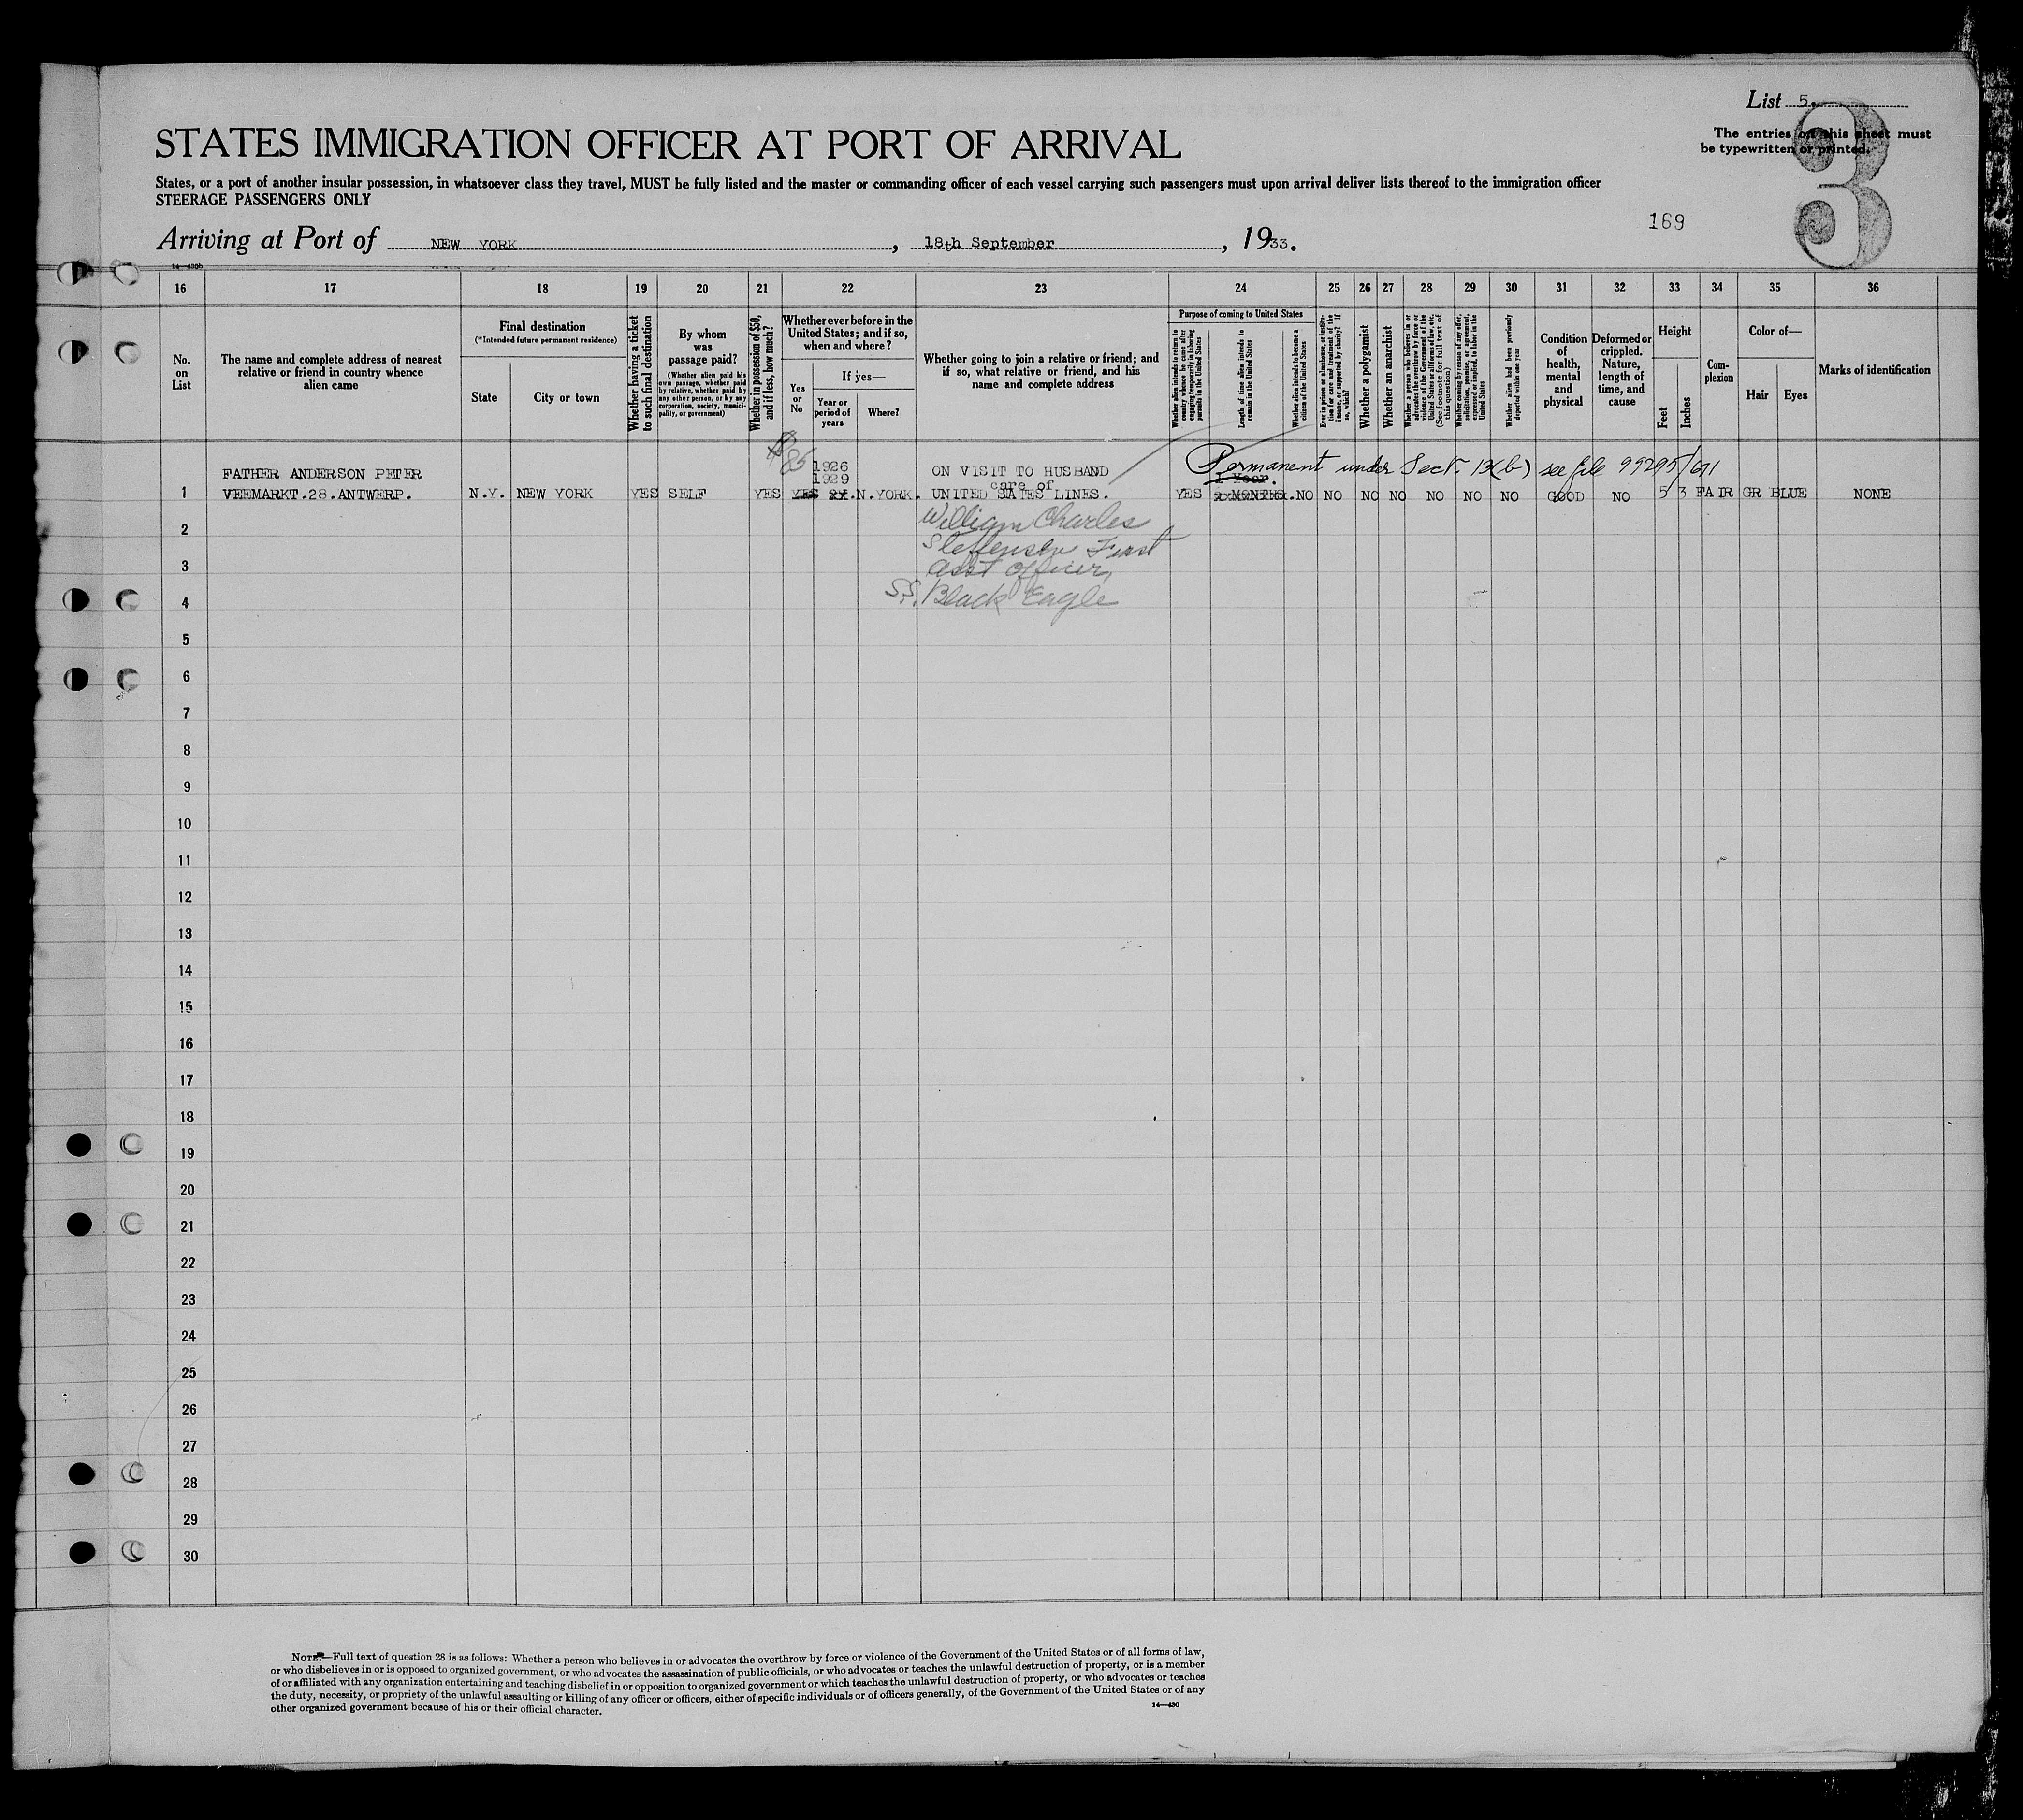 List 5.
3
STATES IMMIGRATION OFFICER AT PORT OF ARRIVAL
The entries on this sheet must
be typewritten or printed.
States, or a port of another insular possession, in whatsoever class they travel, MUST be fully listed and the master or commanding officer of each vessel carrying such passengers must upon arrival deliver lists thereof to the immigration officer
STEERAGE PASSENGERS ONLY
169
Arriving at Port of NEW YORK, 18th September, 1933.
14—430b
16 17 18 19 20 21 22 23 24 25 26 27 28 29 30 31 32 33 34 35 36
No. on List
The name and complete address of nearest relative or friend in country whence alien came
Final destination
(*Intended future permanent residence)
State
City or town
Whether having a ticket to such final destination
By whom was passage paid?
(Whether alien paid his own passage, whether paid by relative, whether paid by any other person, or by any corporation, society, municipality, or government)
Whether in possession of $50, and if less, how much?
Whether ever before in the United States; and if so, when and where?
Yes or No
If yes—
Year or period of years
Where?
Whether going to join a relative or friend; and if so, what relative or friend, and his name and complete address
Purpose of coming to United States
Whether alien intends to return to country whence he came after engaging temporarily in laboring pursuits in the United States
Length of time alien intends to remain in the United States
Whether alien intends to become a citizen of the United States
Ever in prison or almshouse, or institution for care and treatment of the insane, or supported by charity? If so, which?
Whether a polygamist
Whether an anarchist
Whether a person who believes in or advocates the overthrow by force or violence of the Government of the United States or all forms of law, etc. (See footnote for full text of this question)
Whether coming by reason of any offer, solicitation, promise, or agreement, expressed or implied, to labor in the United States
Whether alien had been previously deported within one year
Condition of health, mental and physical
Deformed or crippled. Nature, length of time, and cause
Height
Feet
Inches
Complexion
Color of—
Hair
Eyes
Marks of identification
$85 1926 Permanent under Sect. 13(b) see file 99295/691
FATHER ANDERSON PETER 1929 ON VISIT TO HUSBAND 1 Year.
care of
1 VEEMARKT.28.ANTWERP. N.Y. NEW YORK YES SELF YES YES 2Y. N.YORK. UNITED SATES LINES. YES NO NO NO NO NO NO NO GOOD NO 5 3 FAIR GR BLUE NONE
William Charles
2
Steffensen First
3 asst officer,
4 S.S. Black Eagle
5
6
7
8
9
10
11
12
13
14
15
16
17
18
19
20
21
22
23
24
25
26
27
28
29
30
NOTE.—Full text of question 28 is as follows: Whether a person who believes in or advocates the overthrow by force or violence of the Government of the United States or of all forms of law,
or who disbelieves in or is opposed to organized government, or who advocates the assassination of public officials, or who advocates or teaches the unlawful destruction of property, or is a member
of or affiliated with any organization entertaining and teaching disbelief in or opposition to organized government or which teaches the unlawful destruction of property, or who advocates or teaches
the duty, necessity, or propriety of the unlawful assaulting or killing of any officer or officers, either of specific individuals or of officers generally, of the Government of the United States or of any
other organized government because of his or their official character.
14—430